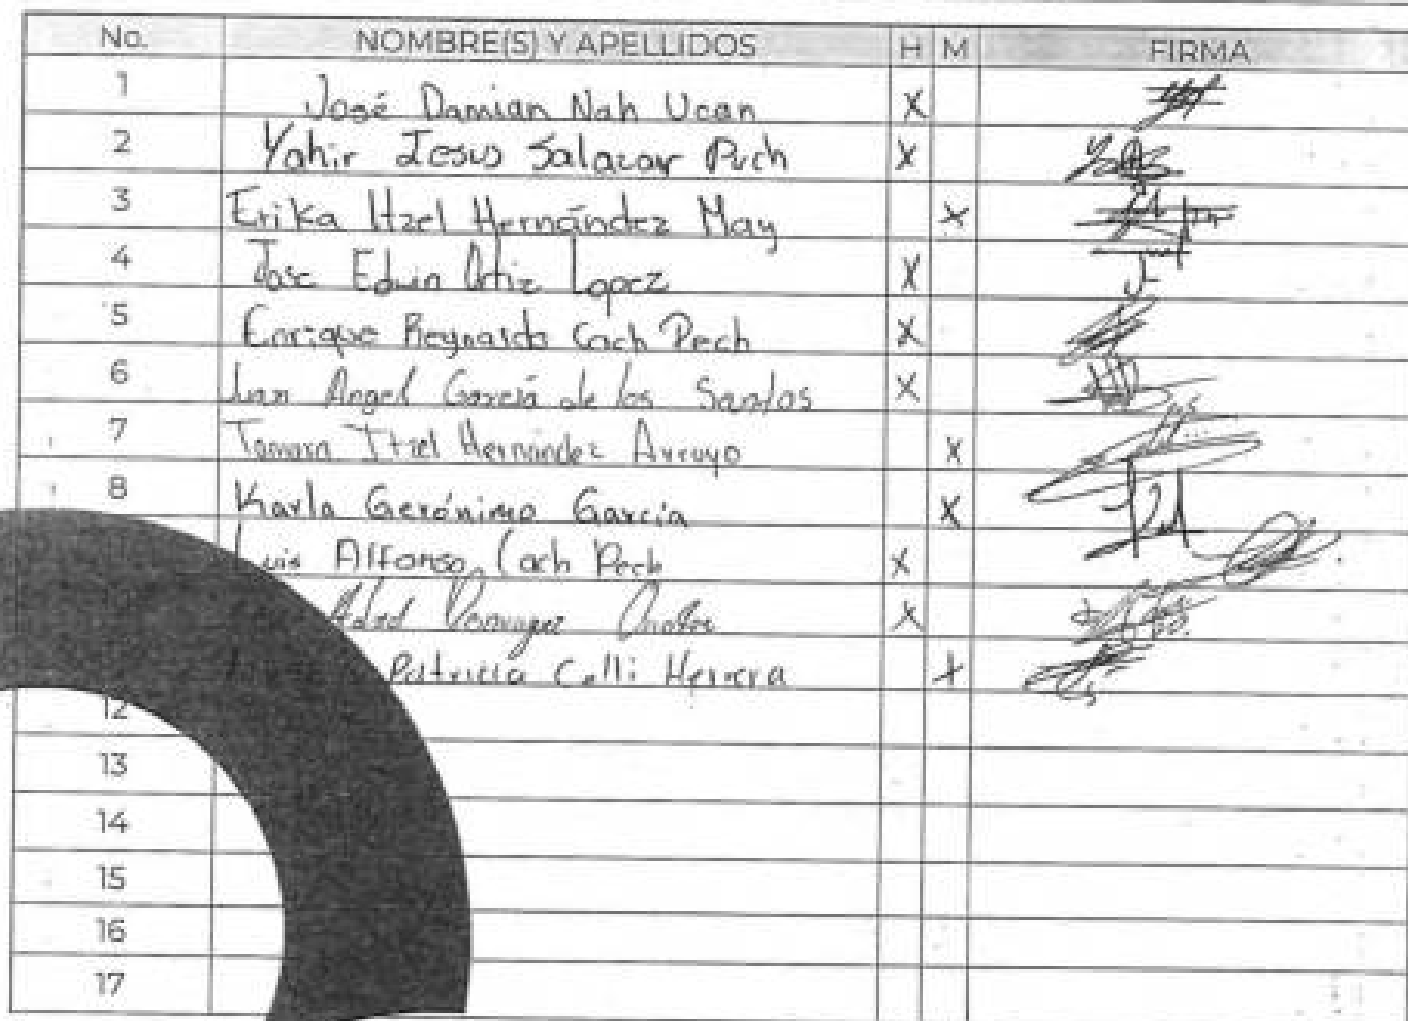 No. NOMBRE(S) Y APELLIDOS H M FIRMA
1 José Damian Nah Ucan X
2 Yahir Jesus Salazar Puch X
3 Erika Itzel Hernández May X
4 Jose Edwin Ortiz Lopez X
5 Enrique Reynaldo Cach Pech X
6 Juan Angel García de los Santos X
7 Tamara Itzel Hernández Arroyo X
8 Karla Gerónimo García X
Luis Alfonso Cach Pech X
X
Patricia Colli Herrera +
12
13
14
15
16
17